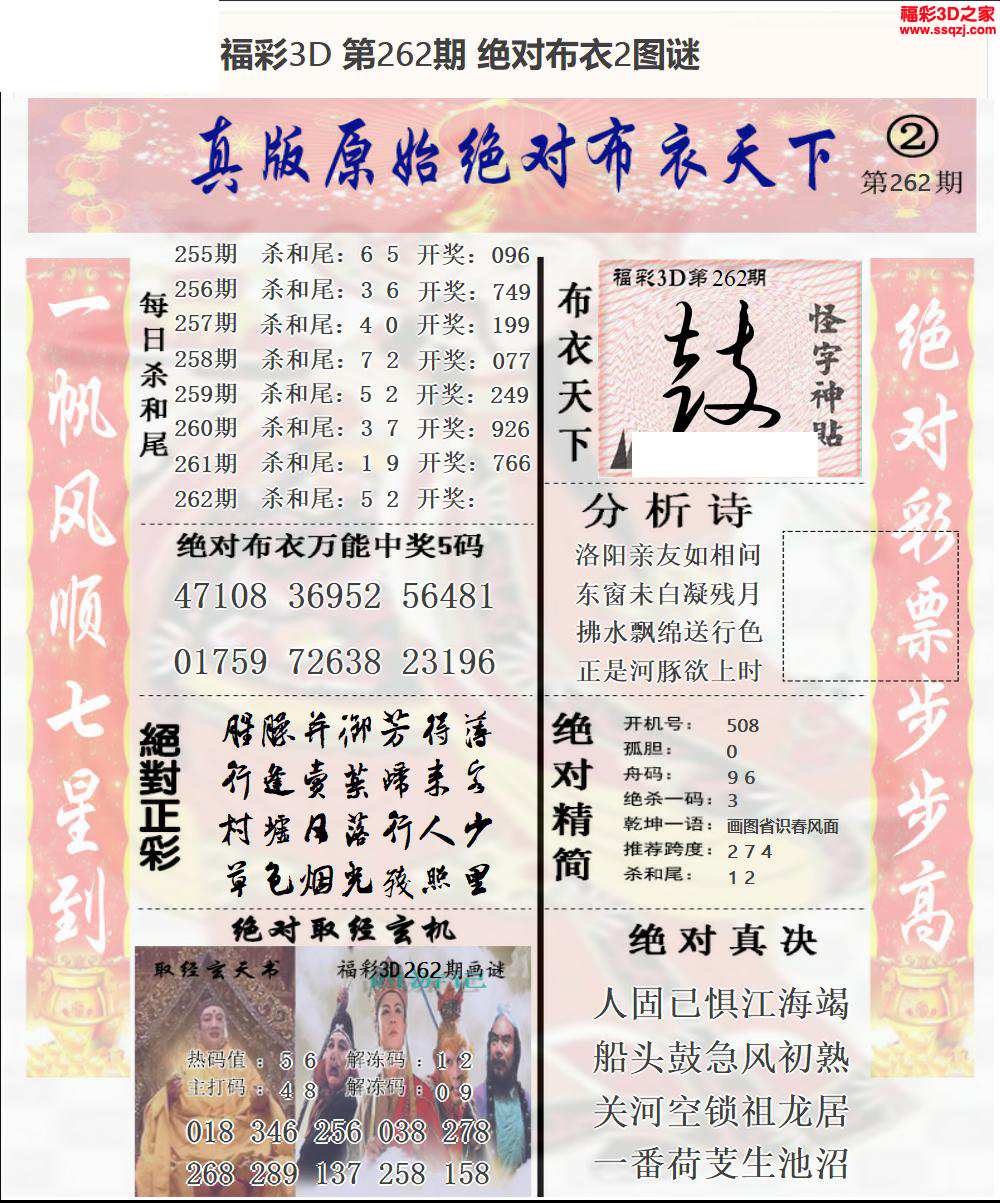 福彩3D之家
www.ssqzj.com
福彩3D 第262期 绝对布衣2图谜
真版原始绝对布衣天下
②
第262期
一帆风顺七星到
每日杀和尾
255期 杀和尾：6 5 开奖：096
256期 杀和尾：3 6 开奖：749
257期 杀和尾：4 0 开奖：199
258期 杀和尾：7 2 开奖：077
259期 杀和尾：5 2 开奖：249
260期 杀和尾：3 7 开奖：926
261期 杀和尾：1 9 开奖：766
262期 杀和尾：5 2 开奖：
绝对布衣万能中奖5码
47108 36952 56481
01759 72638 23196
絕對正彩
并御芳得薄
行逢卖叶归来客
村墟月落行人少
草色烟光残照里
绝对取经玄机
取经玄天书
福彩3D262期画谜
热码值：5 6 解冻码：1 2
主打码：4 8 解冻码：0 9
018 346 256 038 278
268 289 137 258 158
布衣天下
福彩3D第262期
鼓
怪字神點
分析诗
洛阳亲友如相问
东窗未白凝残月
拂水飘绵送行色
正是河豚欲上时
绝对精简
开机号：508
孤胆：0
舟码：9 6
绝杀一码：3
乾坤一语：画图省识春风面
推荐跨度：2 7 4
杀和尾：1 2
绝对真决
人固已惧江海竭
船头鼓急风初熟
关河空锁祖龙居
一番荷芰生池沼
绝对彩票步步高